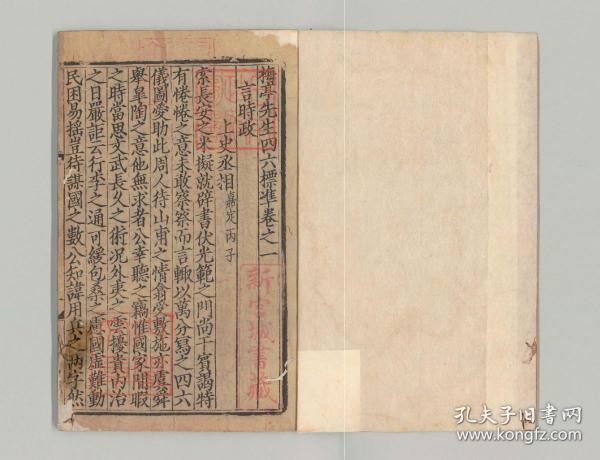 梅亭先生四六標準卷之一
言時政
上史丞相 嘉定丙子
索長安之米擬就辟書伏光範之門尚干賓謁特
有惓惓之意未敢察察而言輒以萬分寫之四六
儀圖愛助此周人待山甫之情翕受敷施亦虞舜
舉皋陶之意他無求者公幸聽之竊惟國家閒暇
之時當思文武長久之術況外夷之雲擾貴內治
之日嚴詎云行李之通可緩包桑之慮國虛難動
民困易搖豈待謀國之數公知諱用兵之兩字然
新宮城書藏
孔夫子旧书网
www.kongfz.com